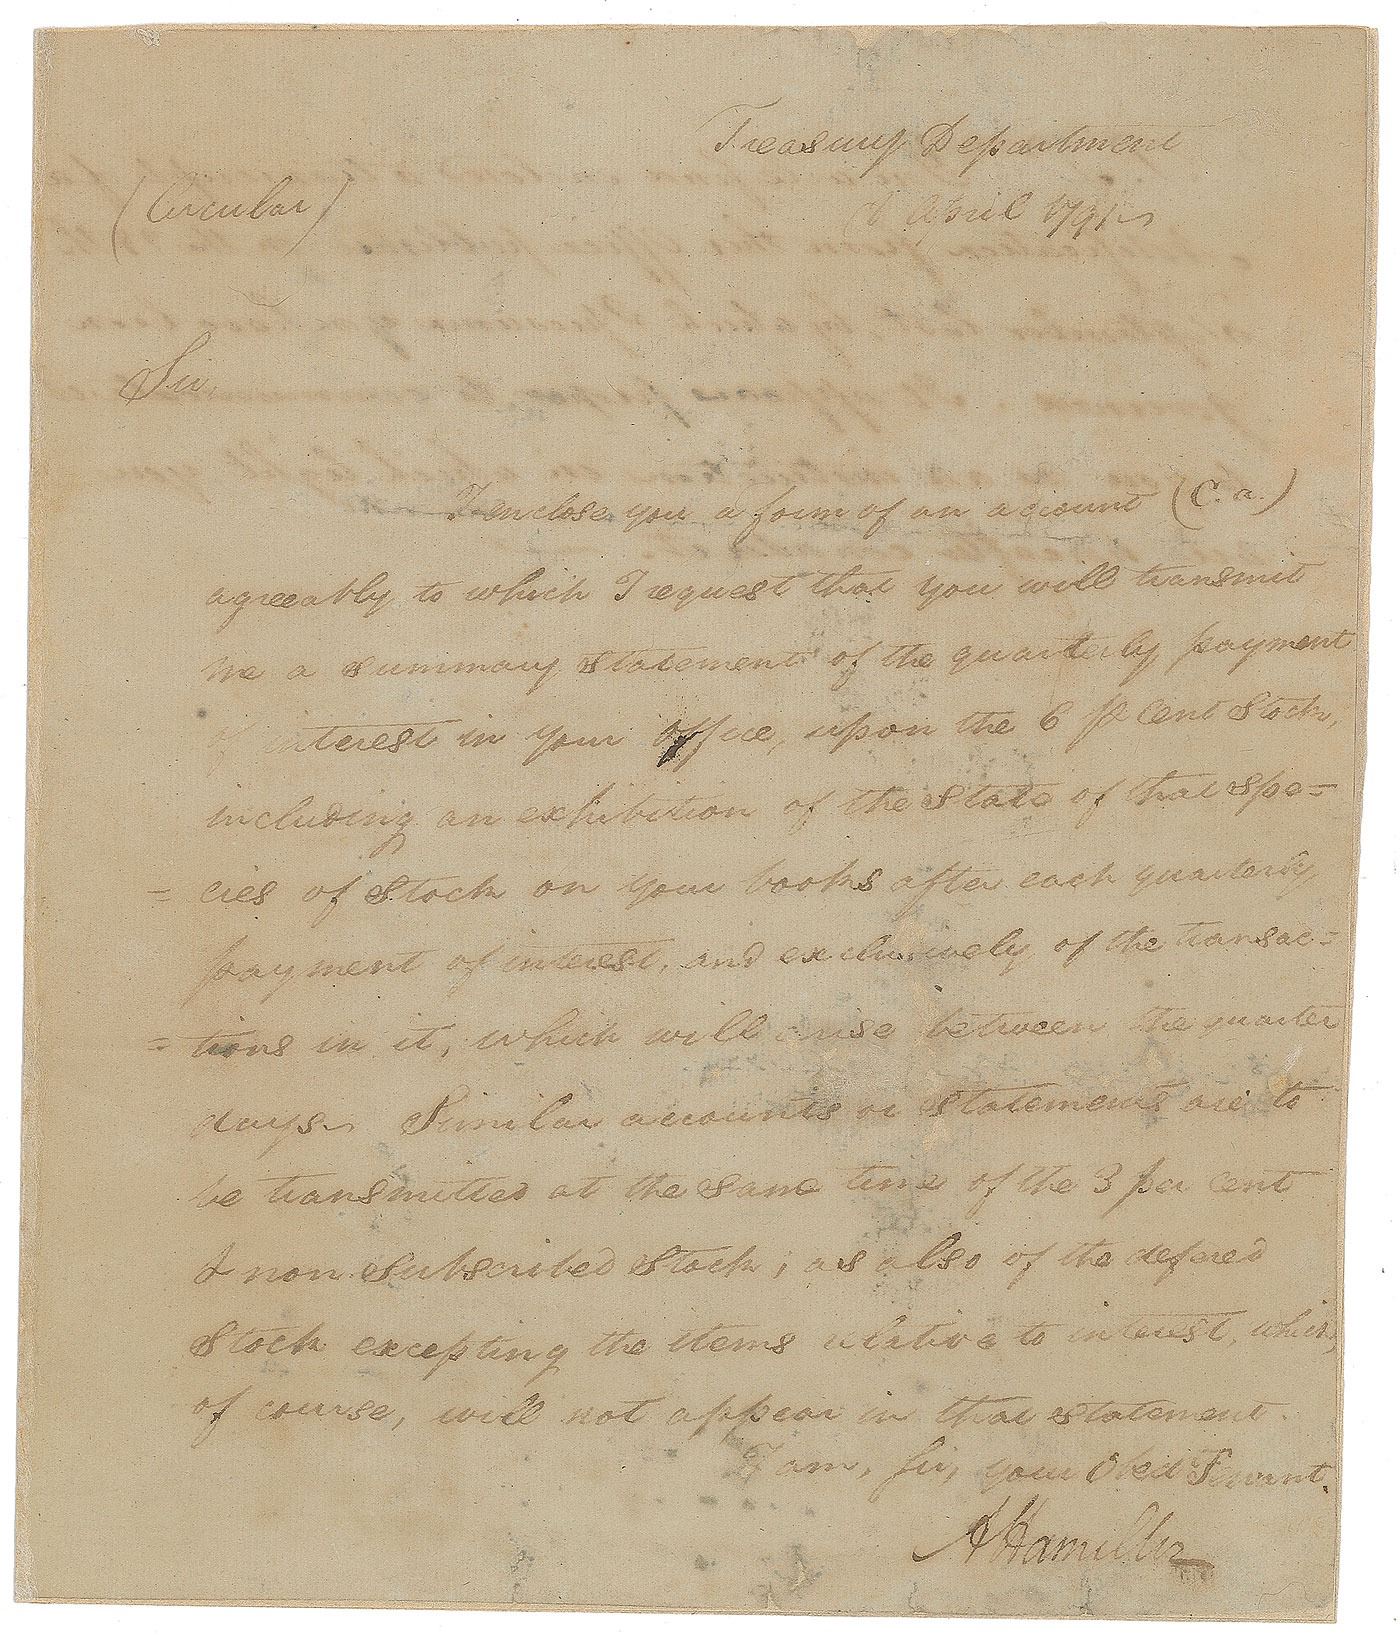 Treasury Department
(Circular)
April 1791
Sir,
I enclose you a form of an account (C. a.)
agreeably to which I request that you will transmit
me a summary statement of the quarterly payment
of interest in your office, upon the 6 ⅌ Cent Stock,
including an exhibition of the State of that spe=
= cies of Stock on your books after each quarterly
payment of interest, and exclusively of the transac=
= tions in it, which will arise between the quarter
days. Similar accounts or statements are to
be transmitted at the same time of the 3 per cent
& non subscribed Stock, as also of the defered
Stock excepting the items relative to interest, which,
of course, will not appear in that statement.
I am, Sir, your Obed Servant.
A Hamilton